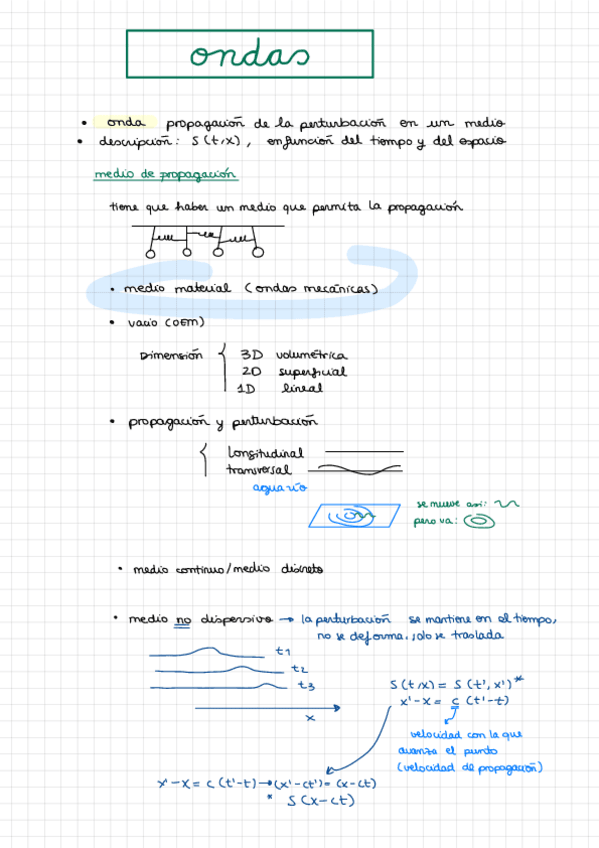 ondas
• onda propagación de la perturbación en un medio
• descripción: S(t,x), en función del tiempo y del espacio
medio de propagación
tiene que haber un medio que permita la propagación
• medio material (ondas mecánicas)
• vacío (OEM)
Dimensión { 3D volumétrica
2D superficial
1D lineal
• propagación y perturbación
{ longitudinal
transversal
agua río
se mueve así:
pero va:
• medio continuo/medio discreto
• medio no dispersivo → la perturbación se mantiene en el tiempo,
no se deforma, solo se traslada
t1
t2
t3
x
S(t,x) = S(t',x')*
x'-x = c (t'-t)
velocidad con la que
avanza el punto
(velocidad de propagación)
x'-x = c(t'-t) → (x'-ct') = (x-ct)
* S(x-ct)